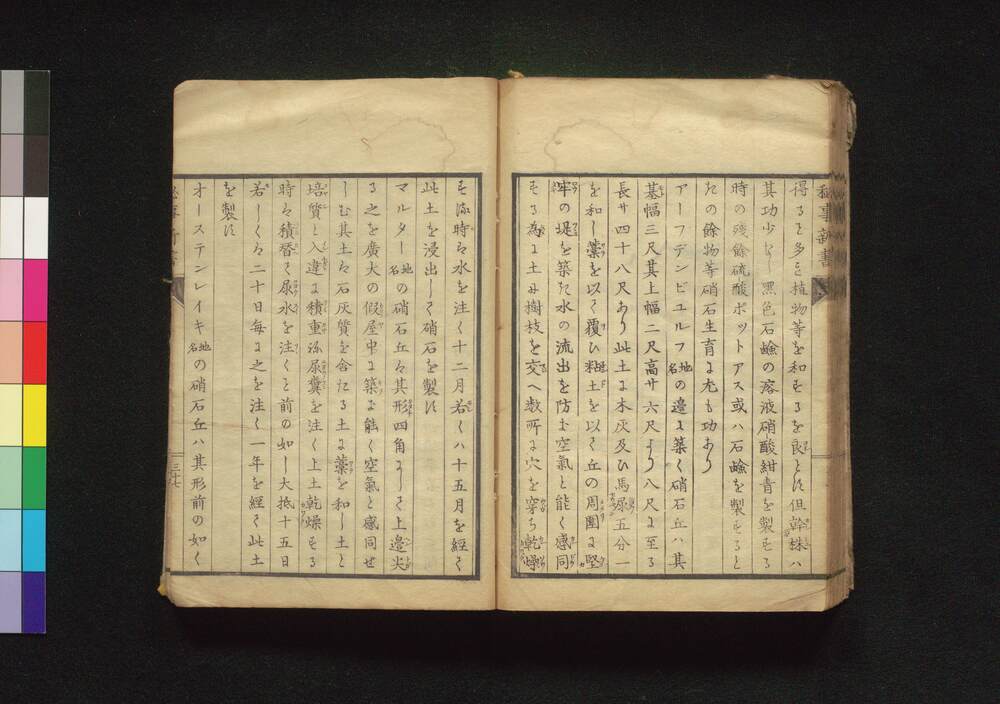 秘事新書
得るを多し植物等を和するを良とす但幹株ハ
其功少なし黒色石鹼の溶液硝酸紺青を製する
時の残餘硫酸ポットアス或ハ石鹼を製すると
きの餘物等硝石生育に尤も功あり
アーフデンビユルフ地名の邊に築く硝石丘ハ其
基幅三尺其上幅二尺高サ六尺より八尺に至る
長サ四十八尺あり此土に木灰及ひ馬尿五分一
を和し藁を以て覆ひ粘土を以て丘の周圍に堅
牢の堤を築き水の流出を防き空氣と能く感同
する為に土に樹枝を交へ數所に穴を穿ち乾燥
する時は水を注く十二月若くハ十五月を經て
此土を浸出して硝石を製す
マルター地名の硝石丘は其形四角にして上邊尖
る之を廣大の假屋中に築き能く空氣と感同せ
しむ其土は石灰質を含たる土に藁を和し土と
培質と入違に積重ね尿糞を注く上土乾燥する
時は積暦て尿水を注くを前の如し大抵十五日
若しくは二十日毎に之を注く一年を經て此土
を製す
オーステンレイキ地名の硝石丘ハ其形前の如く
三十七